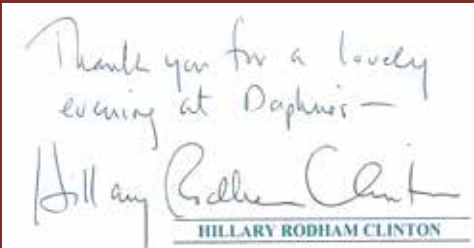 Thank you for a lovely
evening at Daphne's —
Hillary Rodham Clinton
HILLARY RODHAM CLINTON